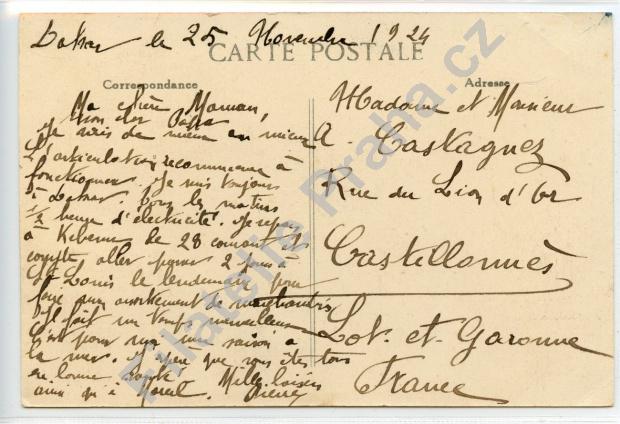 Dakar le 25 Novembre 1924
CARTE POSTALE
Correspondance
Adresse
Ma chère Maman,
Mon cher Papa
Je vais de mieux en mieux
L'articulation recommence à
fonctionner. Je suis toujours
à Dakar. Tous les matins
1/2 heure d'électricité. Je repars
à Kebemer le 28 courant et
compte aller passer 2 jours à
St Louis le lendemain pour
faire un assortiment de marchandises
Il fait un temps merveilleux
C'est pour moi une saison à
la mer. J'espère que vous êtes tous
en bonne santé
ainsi qu'à Mille baisers
Pierre
Madame et Monsieur
A. Castagnez
Rue du Lion d'Or
Castillonnès
Lot et Garonne
France
Filatelie Praha.cz